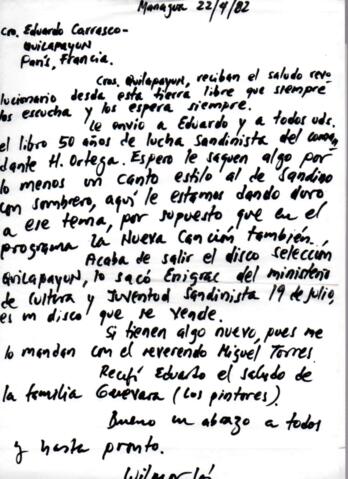 Managua 22/9/82
Cro. Eduardo Carrasco-
QUILAPAYUN
París, Francia.
Cros. Quilapayun, reciban el saludo revo
lucionario desda esta tierra libre que siempre
los escucha y los espera siempre.
Le envio a Eduardo y a todos uds.
el libro 50 años de lucha Sandinista del coman
dante H. Ortega. Espero le saquen algo por
lo menos un canto estilo al de Sandino
con sombrero, aquí le estamos dando duro
a ese tema, por supuesto que en el
programa la Nueva Canción también.
Acaba de salir el disco selección
QUILAPAYUN, lo sacó Enigrac del ministerio
de Cultura y Juventud Sandinista 19 de julio,
es un disco que se vende.
Si tienen algo nuevo, pues me
lo mandan con el reverendo Miguel Torres.
Recibí Eduardo el saludo de
la familia Guevara (los pintores).
Bueno un abrazo a todos
y hasta pronto.